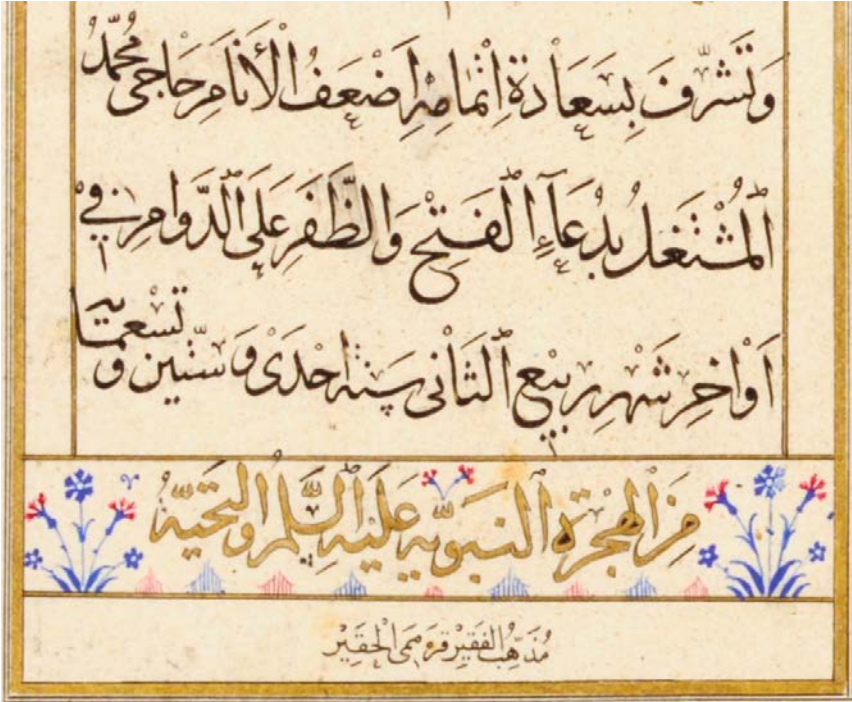 وَتَشَرَّفَ بِسَعَادَةِ اِتْمَامِهِ اَضْعَفُ الْأَنَامِ حَاجِی مُحَمَّدْ
الْمُشْتَغِلُ بِدُعَاءِ الْفَتْحِ وَالظَّفَرِ عَلَی الدَّوَامِ فِي
اَوَاخِرِ شَهْرِ رَبِيعِ الثَّانِی سَنَةِ اِحْدَی وَسِتِّينَ وَتِسْعمِائَة
مِنَ الْهِجْرَةِ النَّبَوِيَّةِ عَلَيْهِ السَّلَامُ وَالتَّحِيَّةُ
مُذَهِّبُ الْفَقِيرْ قَرَه مَمِی الْحَقِيرْ